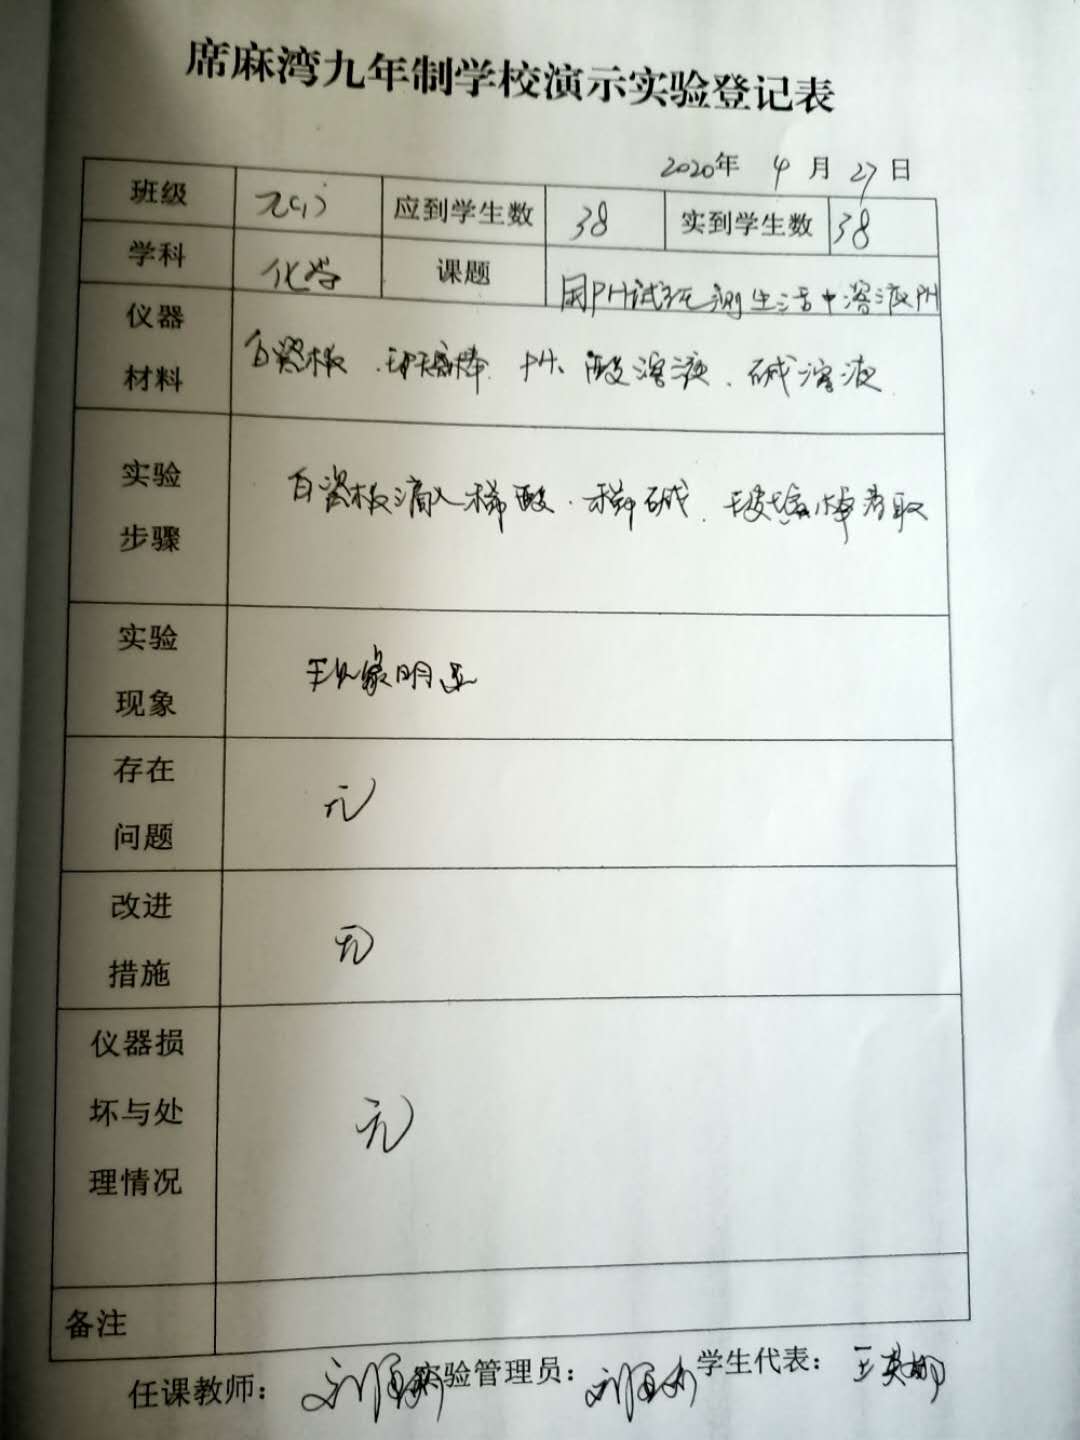 席麻湾九年制学校演示实验登记表
2020年 4 月 27 日
班级 九(1) 应到学生数 38 实到学生数 38
学科 化学 课题 用PH试纸测生活中溶液PH
仪器
材料
白瓷板、玻璃棒、PH、酸溶液、碱溶液
实验
步骤
白瓷板滴入稀酸、稀碱、玻璃棒蘸取
实验
现象
现象明显
存在
问题
无
改进
措施
无
仪器损
坏与处
理情况
无
备注
任课教师： 实验管理员： 学生代表： 王英娜